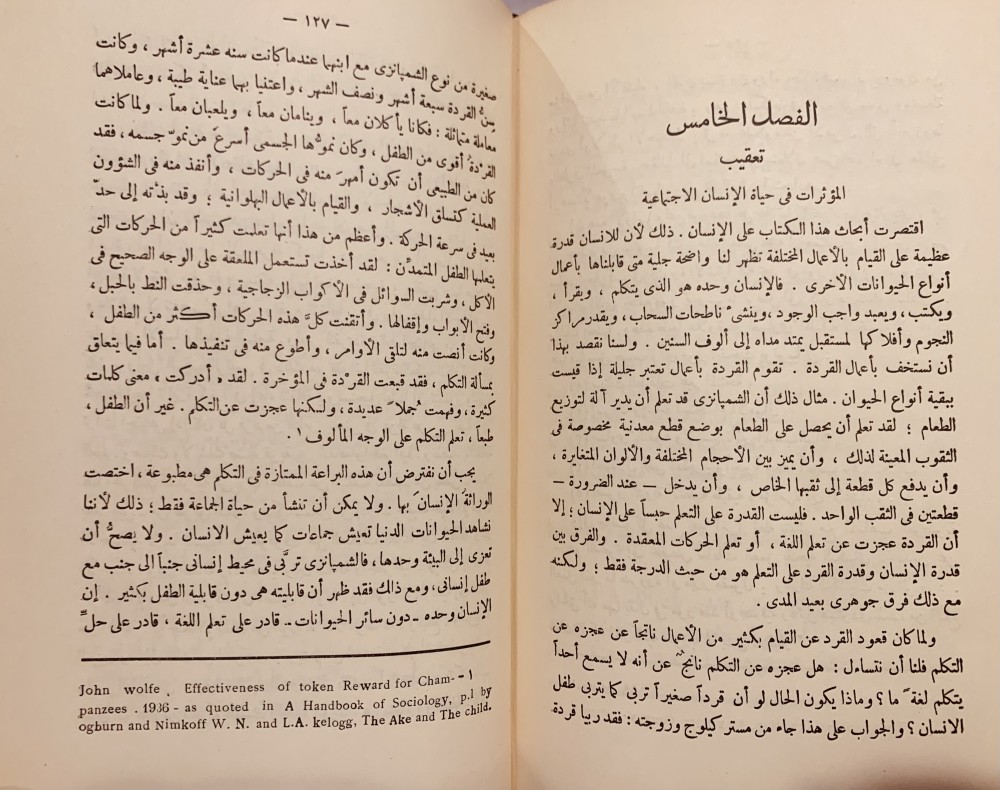 الفصل الخامس
تعقيب
المؤثرات فى حياة الإنسان الاجتماعية
اقتصرت أبحاث هذا الكتاب على الإنسان . ذلك لأن للانسان قدرة
عظيمة على القيام بالأعمال المختلفة تظهر لنا واضحة جلية متى قابلناها بأعمال
أنواع الحيوانات الأخرى . فالإنسان وحده هو الذى يتكلم ، ويقرأ ،
ويكتب ، ويعبد واجب الوجود ، وينشىء ناطحات السحاب ، ويقدر مراكز
النجوم وأفلاكها لمستقبل يمتد مداه إلى ألوف السنين . ولسنا نقصد بهذا
أن نستخف بأعمال القردة . تقوم القردة بأعمال تعتبر جليلة إذا قيست
ببقية أنواع الحيوان . مثال ذلك أن الشمبانزى قد تعلم أن يدير آلة لتوزيع
الطعام ؛ لقد تعلم أن يحصل على الطعام بوضع قطع معدنية مخصوصة فى
الثقوب المعينة لذلك ، وأن يميز بين الأحجام المختلفة والألوان المتغايرة ،
وأن يدفع كل قطعة إلى ثقبها الخاص ، وأن يدخل — عند الضرورة —
قطعتين فى الثقب الواحد . فليست القدرة على التعلم حبساً على الإنسان ؛ إلا
أن القردة عجزت عن تعلم اللغة ، أو تعلم الحركات المعقدة . والفرق بين
قدرة الإنسان وقدرة القرد على التعلم هو من حيث الدرجة فقط ؛ ولكنه
مع ذلك فرق جوهرى بعيد المدى .
ولما كان قعود القرد عن القيام بكثير من الأعمال ناتجاً عن عجزه عن
التكلم فلنا أن نتساءل : هل عجزه عن التكلم ناتج عن أنه لا يسمع أحداً
يتكلم لغةً ما ؟ وماذا يكون الحال لو أن قرداً صغيراً تربى كما يتربى طفل
الانسان ؟ والجواب على هذا جاء من مستر كيلوج وزوجته : فقد ربيا قردة
— ١٢٧ —
صغيرة من نوع الشمبانزى مع ابنهما عندما كانت سنه عشرة أشهر ، وكانت
سنُّ القردة سبعة أشهر ونصف الشهر ، واعتنيا بهما عناية طيبة ، وعاملاهما
معاملة متماثلة : فكانا يأكلان معاً ، وينامان معاً ، ويلعبان معاً . ولما كانت
القردةُ أقوى من الطفل ، وكان نموُّها الجسمى أسرعَ من نموّ جسمه ، فقد
كان من الطبيعى أن تكون أمهرَ منه فى الحركات ، وأنفذ منه فى الشؤون
العملية كتسلق الأشجار ، والقيام بالأعمال البهلوانية ؛ وقد بذته إلى حدّ
بعيد فى سرعة الحركة . وأعظم من هذا أنها تعلمت كثيراً من الحركات التى
يتعلمها الطفل المتمدّن : لقد أخذت تستعمل الملعقة على الوجه الصحيح فى
الأكل ، وشربت السوائل فى الأكواب الزجاجية ، وحذقت النط بالحبل ،
وفتح الأبواب وإقفالها . وأتقنت كلَّ هذه الحركات أكثر من الطفل ،
وكانت أنصت منه لتلقى الأوامر ، وأطوع منه فى تنفيذها . أما فيما يتعلق
بمسألة التكلم ، فقد قبعت القردة فى المؤخرة . لقد « أدركت » معنى كلمات
كثيرة ، وفهمت جملاً عديدة ، ولكنها عجزت عن التكلم . غير أن الطفل ،
طبعاً ، تعلم التكلم على الوجه المألوف ١ .
يجب أن نفترض أن هذه البراعة الممتازة فى التكلم هى مطبوعة ، اختصت
الوراثةُ الإنسانَ بها . ولا يمكن أن تنشأ من حياة الجماعة فقط ؛ ذلك لأننا
نشاهد الحيوانات الدنيا تعيش جماعات كما يعيش الانسان . ولا يصحُّ أن
تعزى إلى البيئة وحدها ، فالشمبانزى تربَّى فى محيط إنسانى جنباً الى جنب مع
طفل إنسانى ، ومع ذلك فقد ظهر أن قابليته هى دون قابلية الطفل بكثير . إن
الإنسان وحده - دون سائر الحيوانات - قادر على تعلم اللغة ، قادر على حلِّ
١ - John wolfe . Effectiveness of token Reward for Cham-
panzees . 1936 - as quoted in A Handbook of Sociology, p.1 by
ogburn and Nimkoff W. N. and L.A. kelogg, The Ake and The child.